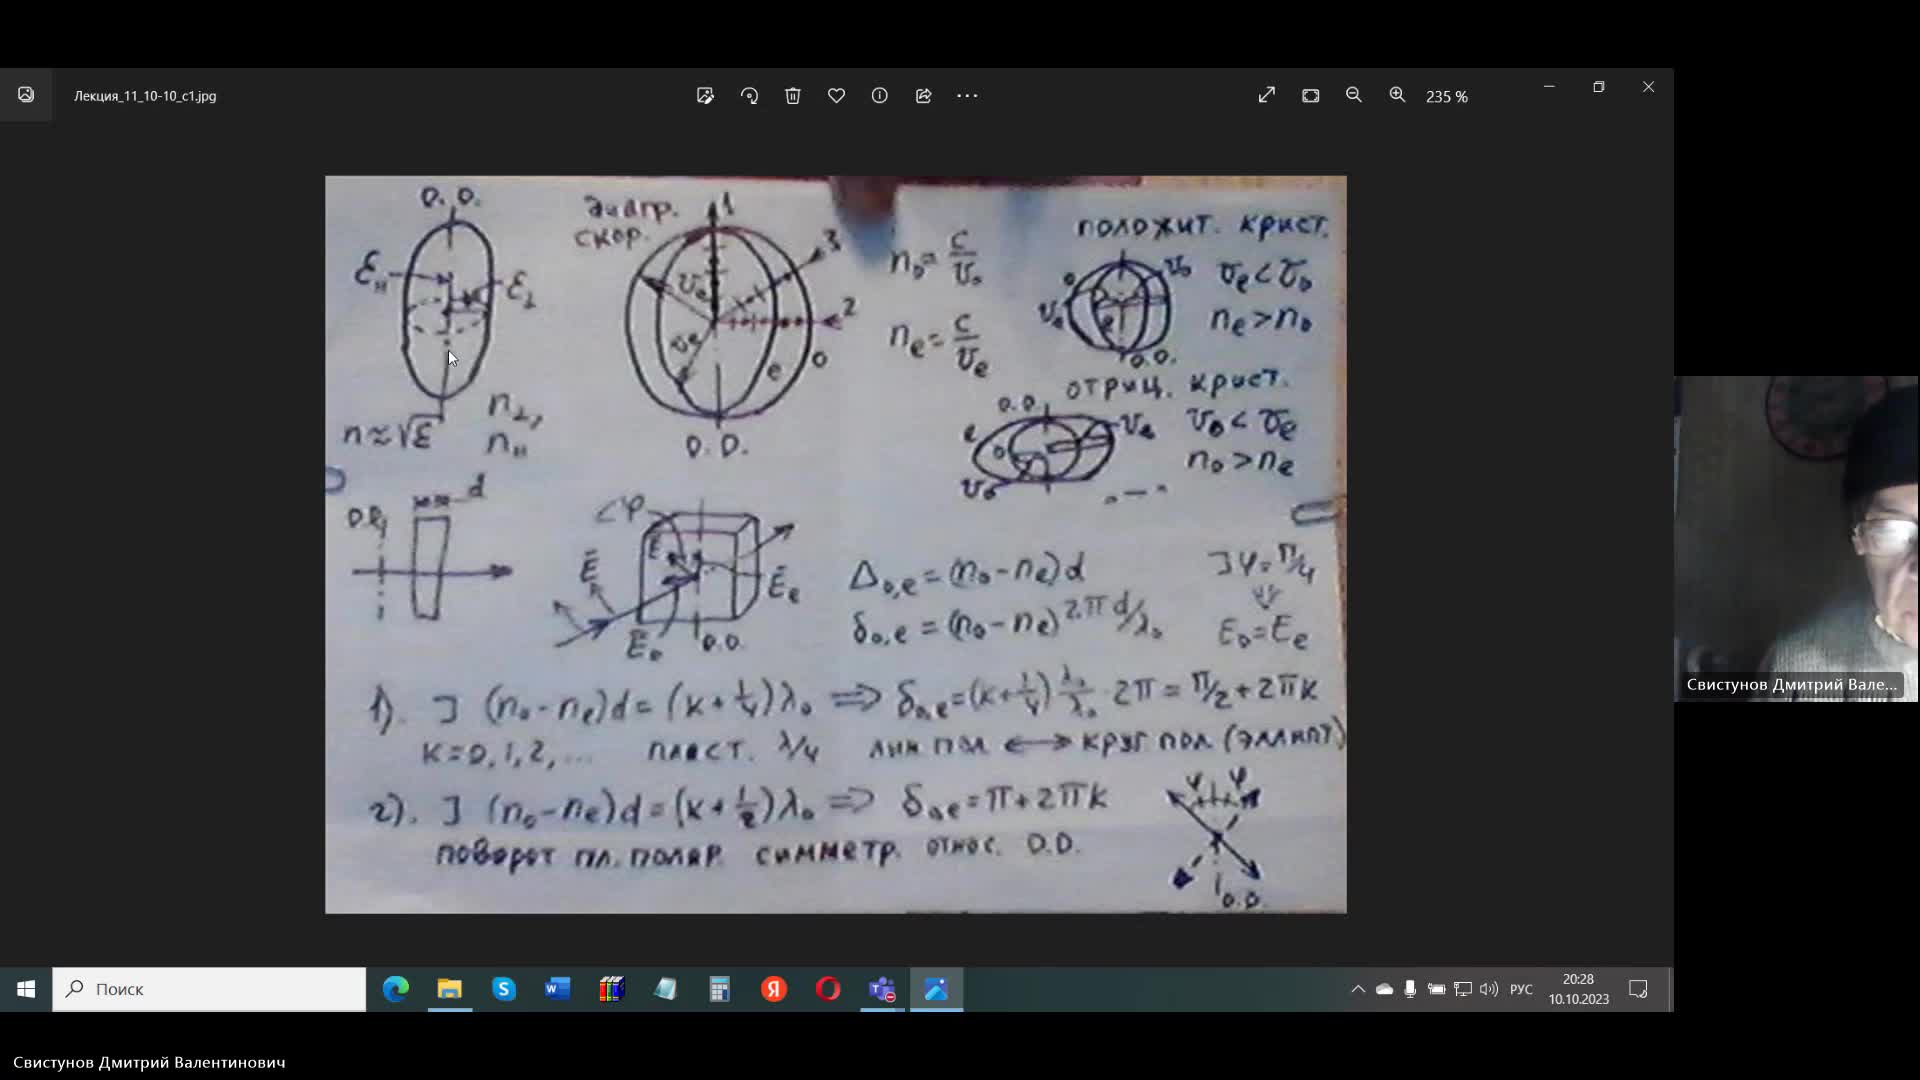 Лекция_11_10-10_c1.jpg
235 %
О.О.
диагр.
скор.
1
3
2
ε||
ε⊥
υe
υe
e
o
n≈√ε
n⊥,
n||
О.О.
n₀ = c/υ₀
nₑ = c/υₑ
положит. крист.
υₑ < υ₀
nₑ > n₀
О.О.
отриц. крист.
О.О.
υ₀ < υₑ
n₀ > nₑ
d
∠φ
Ē
Ēₑ
Ē₀
О.О.
Δ₀,ₑ = (n₀ - nₑ)d
δ₀,ₑ = (n₀ - nₑ) 2πd/λ₀
φ = π/4
E₀ = Eₑ
1). ] (n₀ - nₑ)d = (k + 1/4)λ₀ ⟹ δ₀,ₑ = (k + 1/4) λ₀/λ₀ · 2π = π/2 + 2πk
k = 0, 1, 2, ... пласт. λ/4 лин пол ⟷ круг пол (эллипт)
2). ] (n₀ - nₑ)d = (k + 1/2)λ₀ ⟹ δ₀,ₑ = π + 2πk
поворот пл. поляр. симметр. относ. О.О.
φ φ
О.О.
Свистунов Дмитрий Вале...
Поиск
РУС
20:28
10.10.2023
Свистунов Дмитрий Валентинович